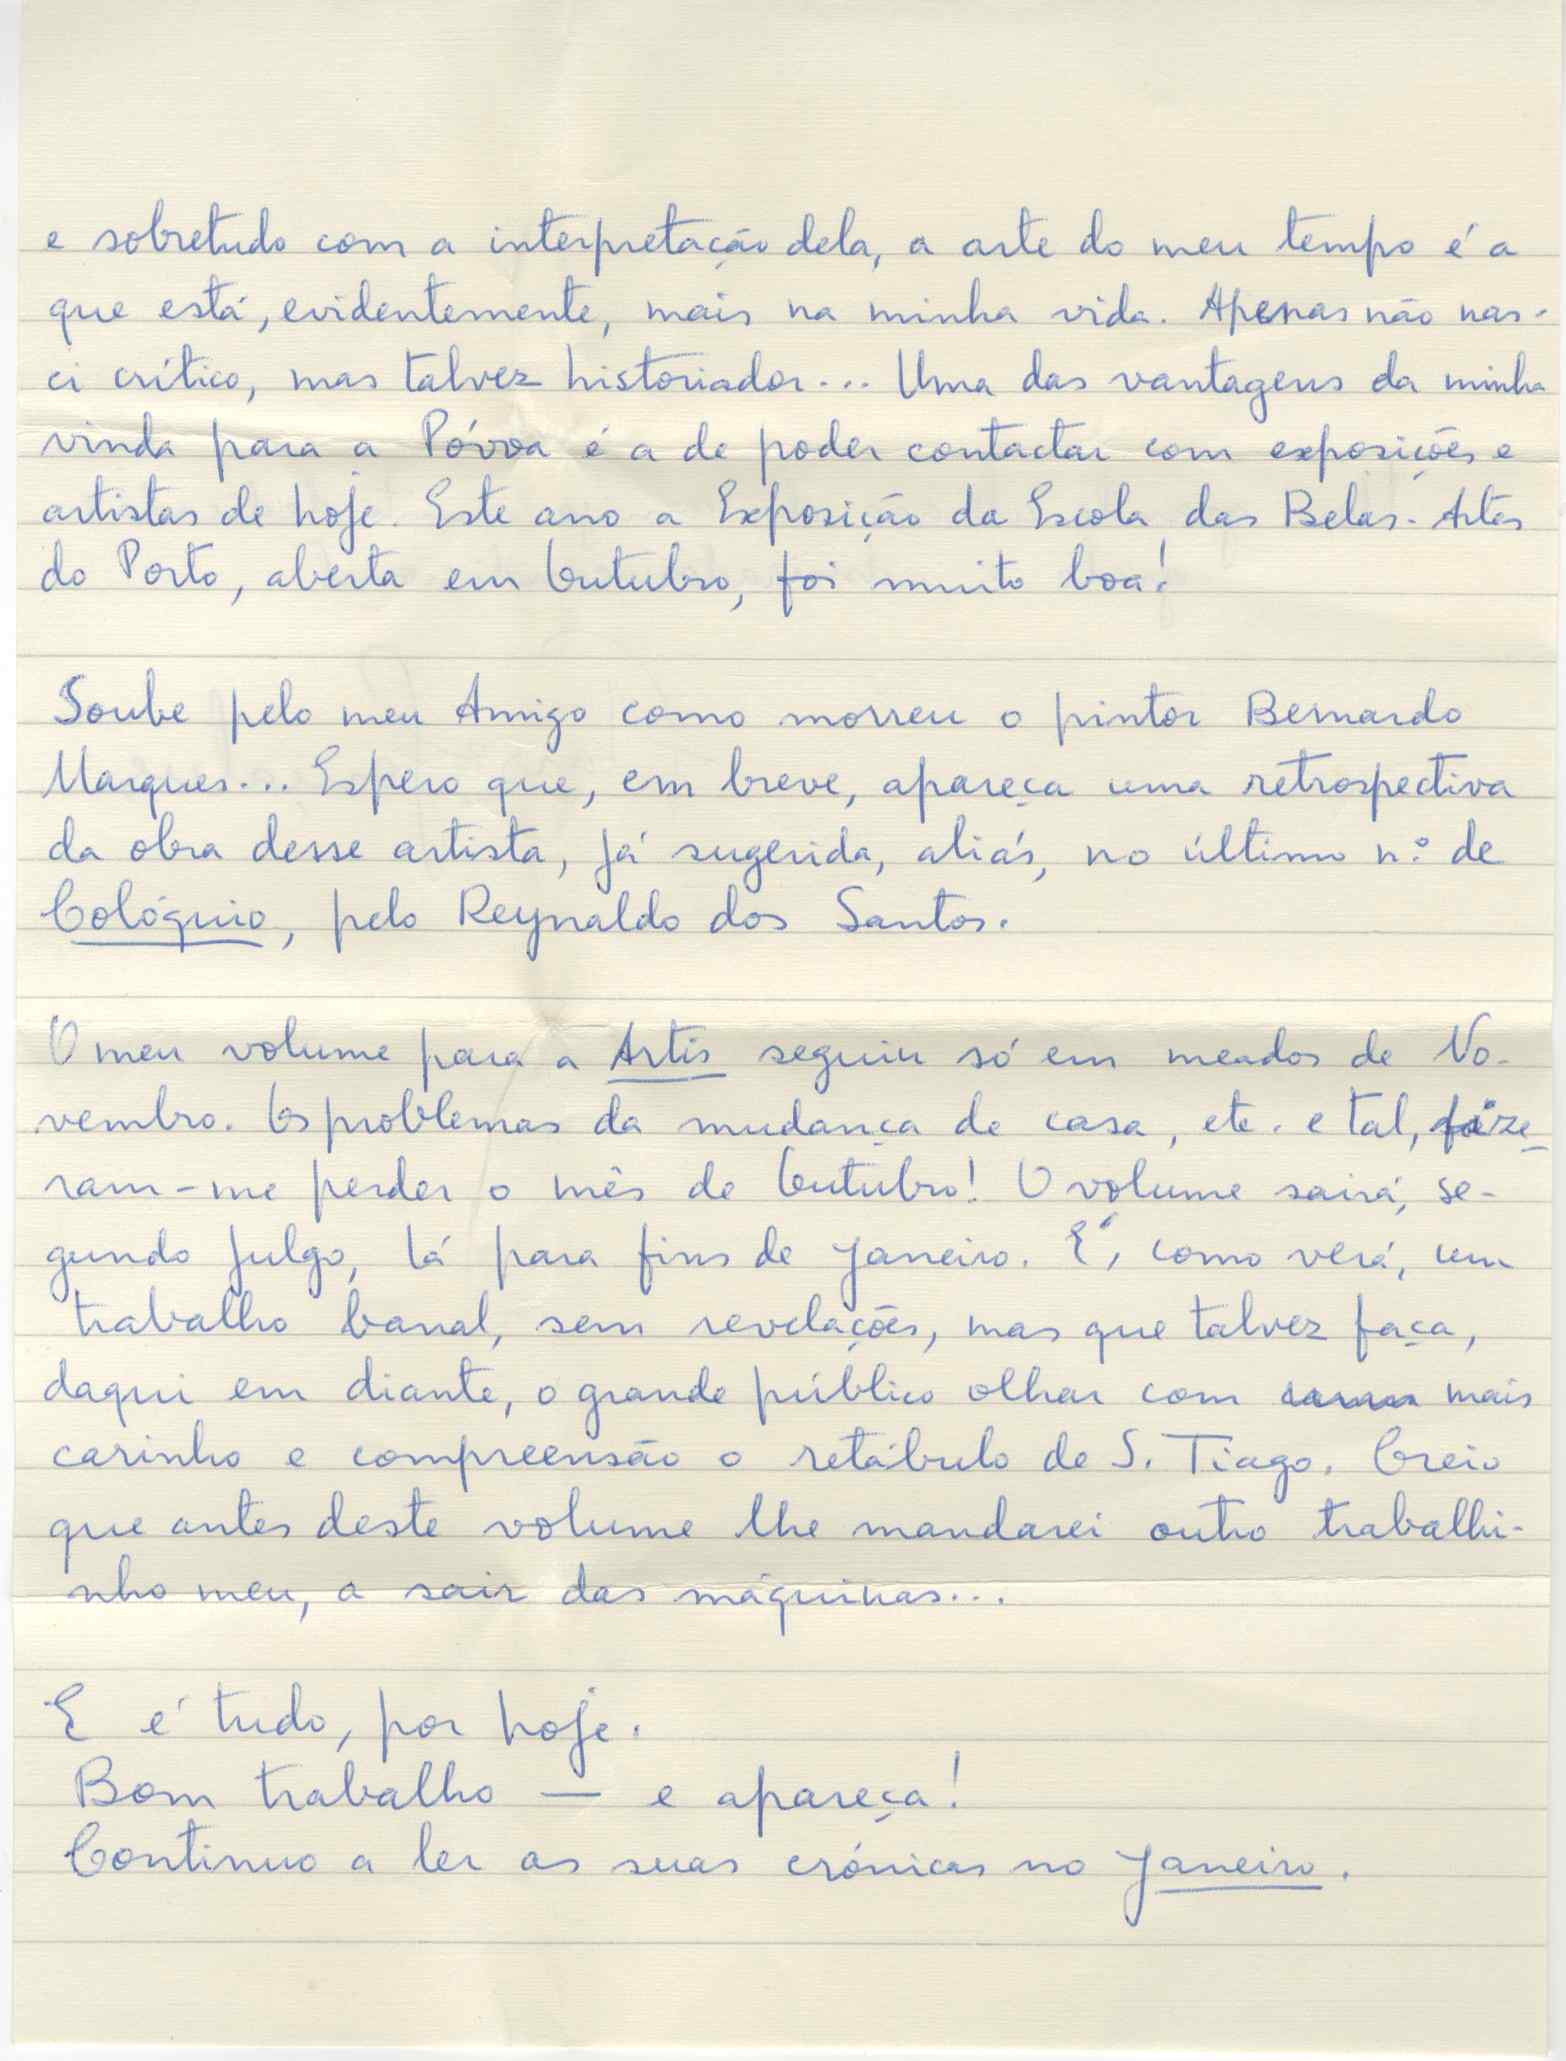 e sobretudo com a interpretação dela, a arte do meu tempo é a
que está, evidentemente, mais na minha vida. Apenas não nas-
ci crítico, mas talvez historiador... Uma das vantagens da minha
vinda para a Póvoa é a de poder contactar com exposições e
artistas de hoje. Este ano a Exposição da Escola das Belas-Artes
do Porto, aberta em Outubro, foi muito boa!
Soube pelo meu Amigo como morreu o pintor Bernardo
Marques... Espero que, em breve, apareça uma retrospectiva
da obra desse artista, já sugerida, aliás, no último n.º de
Colóquio, pelo Reynaldo dos Santos.
O meu volume para a Artis seguiu só em meados de No-
vembro. Os problemas da mudança de casa, etc. e tal, fize-
ram-me perder o mês de Outubro! O volume sairá, se-
gundo julgo, lá para fins de Janeiro. É, como verá, um
trabalho banal, sem revelações, mas que talvez faça,
daqui em diante, o grande público olhar com mais
carinho e compreensão o retábulo de S. Tiago. Creio
que antes deste volume lhe mandarei outro trabalhi-
nho meu, a sair das máquinas...
E é tudo, por hoje.
Bom trabalho — e apareça!
Continuo a ler as suas crónicas no Janeiro.